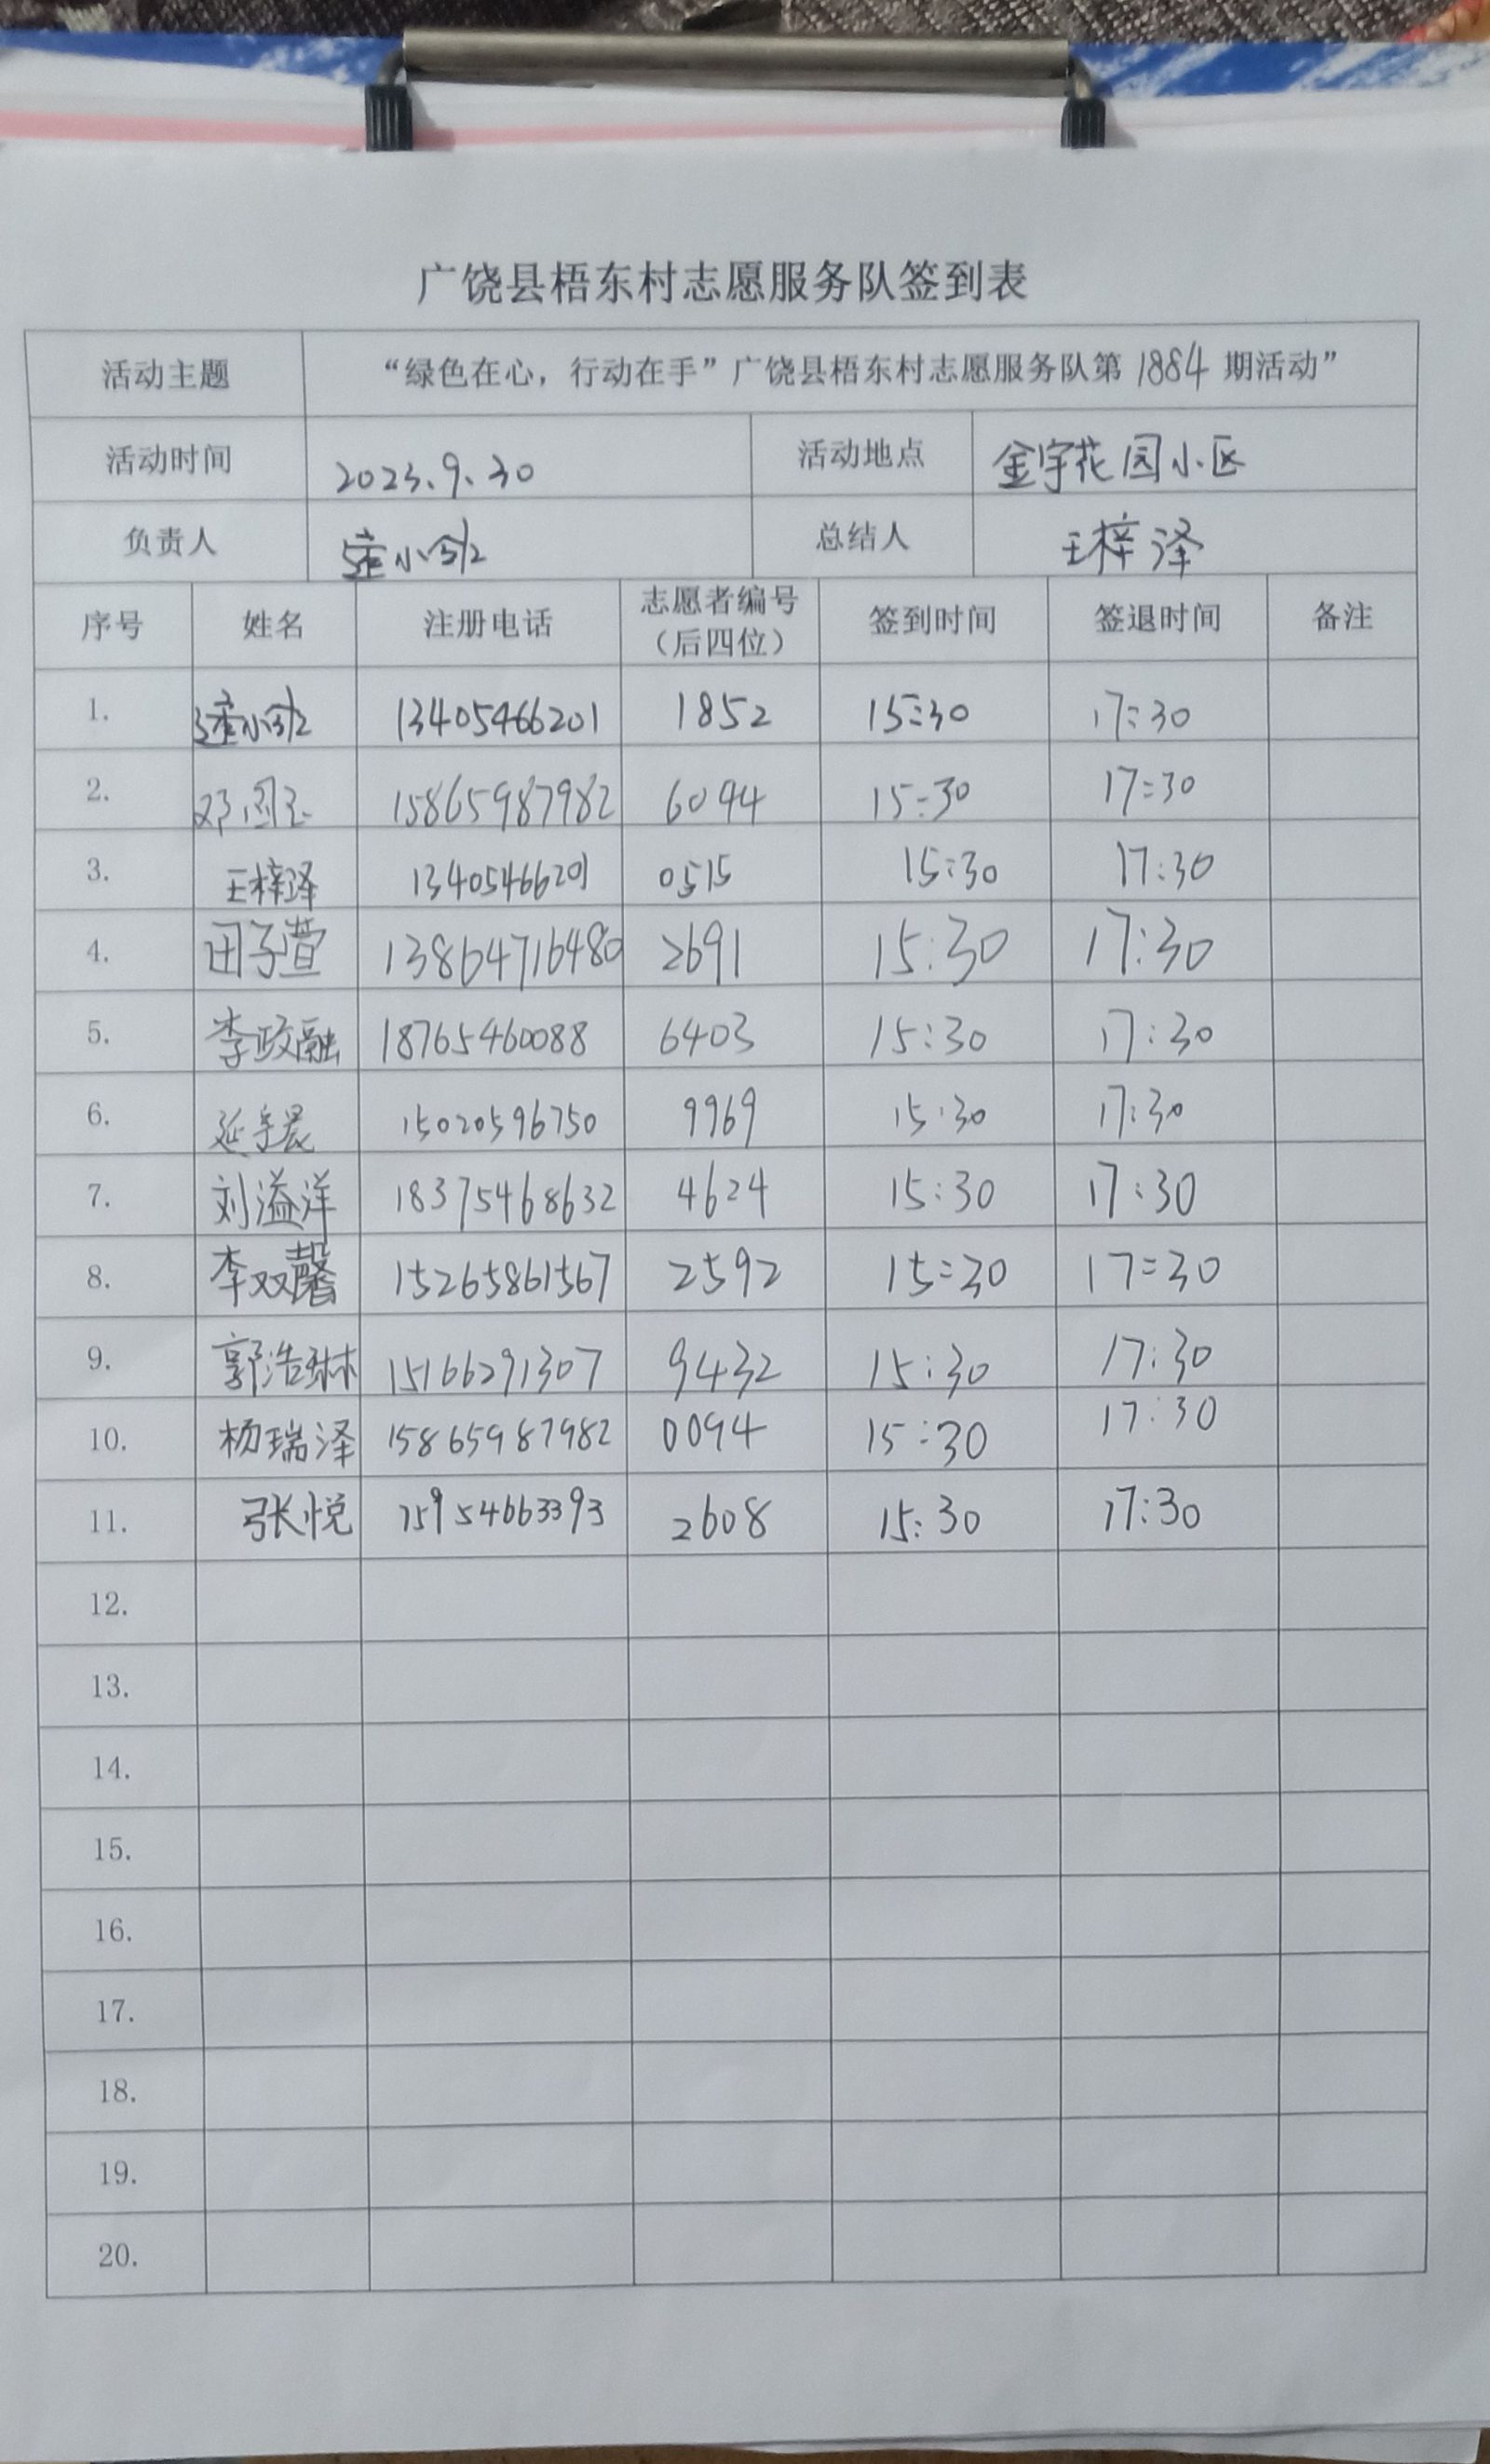 广饶县梧东村志愿服务队签到表
活动主题 “绿色在心，行动在手”广饶县梧东村志愿服务队第 1884 期活动”
活动时间 2023.9.30 活动地点 金宇花园小区
负责人 总结人 王梓泽
序号 姓名 注册电话 志愿者编号（后四位） 签到时间 签退时间 备注
1. 13405466201 1852 15:30 17:30
2. 15865987982 6094 15:30 17:30
3. 王梓泽 13405466201 0515 15:30 17:30
4. 田子萱 13864716480 2691 15:30 17:30
5. 李政融 18765460088 6403 15:30 17:30
6. 延宇晨 15020596750 9969 15:30 17:30
7. 刘溢洋 18375468632 4624 15:30 17:30
8. 李双馨 15265861567 2592 15:30 17:30
9. 郭浩琳 15166291307 9432 15:30 17:30
10. 杨瑞泽 15865987982 0094 15:30 17:30
11. 张悦 15954663393 2608 15:30 17:30
12.
13.
14.
15.
16.
17.
18.
19.
20.